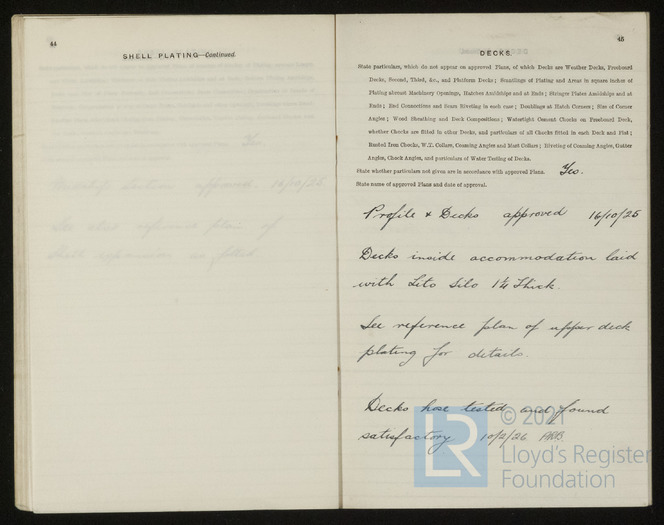 44
SHELL PLATING—Continued.
45
DECKS.
State particulars, which do not appear on approved Plans, of which Decks are Weather Decks, Freeboard
Decks, Second, Third, &c., and Platform Decks; Scantlings of Plating and Areas in square inches of
Plating abreast Machinery Openings, Hatches Amidships and at Ends; Stringer Plates Amidships and at
Ends; End Connections and Seam Riveting in each case; Doublings at Hatch Corners; Size of Corner
Angles; Wood Sheathing and Deck Compositions; Watertight Cement Chocks on Freeboard Deck,
whether Chocks are fitted in other Decks, and particulars of all Chocks fitted in each Deck and Flat;
Beaded Iron Chocks, W.T. Collars, Coaming Angles and Mast Collars; Riveting of Coaming Angles, Gutter
Angles, Chock Angles, and particulars of Water Testing of Decks.
State whether particulars not given are in accordance with approved Plans. Yes.
State name of approved Plans and date of approval.
Profile & Decks approved 16/10/25
Decks inside accommodation laid
with Lito Silo 1¼ Thick.
See reference plan of upper deck
plating for details.
Decks hose tested and found
satisfactory 10/2/26
© 2021
LR
Lloyd's Register
Foundation